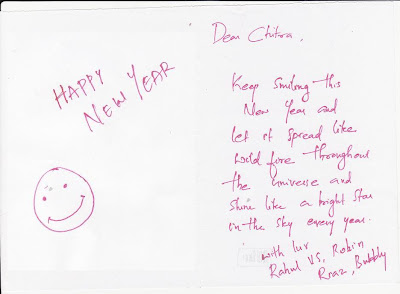 HAPPY
NEW YEAR
Dear Chitra,
Keep smiling this
New Year and
let it spread like
wild fire throughout
the universe and
shine like a bright star
in the sky every year.
with luv
Rahul VS, Robin
Rraz, Bubbly